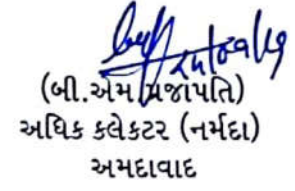 (બી.એમ.પ્રજાપતિ)
અધિક કલેકટર (નર્મદા)
અમદાવાદ